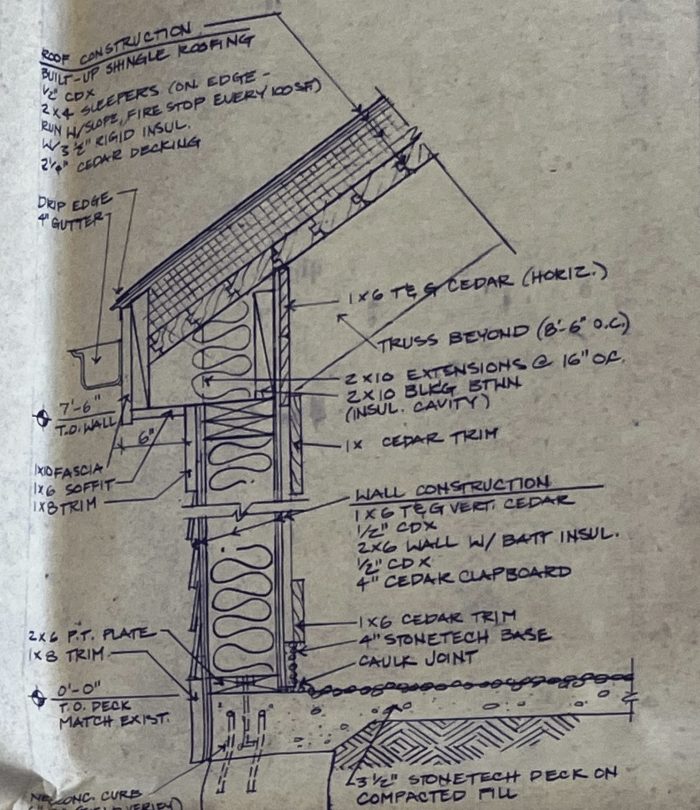 ROOF CONSTRUCTION
BUILT-UP SHINGLE ROOFING
1/2" CDX
2x4 SLEEPERS (ON EDGE -
RUN W/SLOPE, FIRE STOP EVERY 100 SF)
W/ 3 1/2" RIGID INSUL.
2 1/4" CEDAR DECKING
DRIP EDGE
4" GUTTER
1x6 T&G CEDAR (HORIZ.)
TRUSS BEYOND (8'-6" O.C.)
2x10 EXTENSIONS @ 16" O.C.
2x10 BLKG BTWN
(INSUL. CAVITY)
7'-6"
T.O. WALL
6"
1x CEDAR TRIM
1x10 FASCIA
1x6 SOFFIT
1x8 TRIM
WALL CONSTRUCTION
1x6 T&G VERT. CEDAR
1/2" CDX
2x6 WALL W/ BATT INSUL.
1/2" CDX
4" CEDAR CLAPBOARD
2x6 P.T. PLATE
1x8 TRIM
1x6 CEDAR TRIM
4" STONETECH BASE
CAULK JOINT
0'-0"
T.O. DECK
MATCH EXIST.
3 1/2" STONETECH DECK ON
COMPACTED FILL
CONC. CURB
VERIFY)